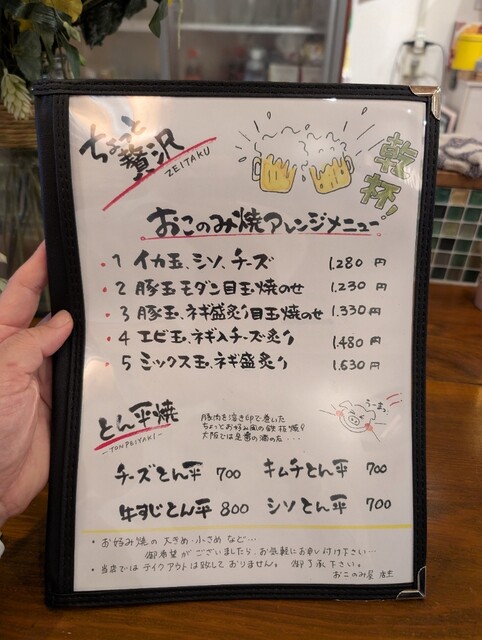 ちょっと
贅沢
ZEITAKU
乾
杯!
おこのみ焼アレンジメニュー
・1 イカ玉、シソ、チーズ 1.280 円
・2 豚玉モダン目玉焼のせ 1.230 円
・3 豚玉、ネギ盛炙り目玉焼のせ 1.330 円
・4 エビ玉、ネギ入チーズ炙り 1.480 円
・5 ミックス玉、ネギ盛炙り 1.630 円
とん平焼
-TONPEIYAKI-
豚肉を溶き卵で巻いた
ちょっとお好み風の鉄板焼!
大阪では定番の酒の友・・・
うーまっ!
チーズとん平 700 キムチとん平 700
牛すじとん平 800 シソとん平 700
・お好み焼の大きめ・小さめなど…
御希望がございましたら、お気軽にお申し付け下さい…
・当店ではテイクアウトは致しておりません。御了承下さい。
おこのみ屋 店主